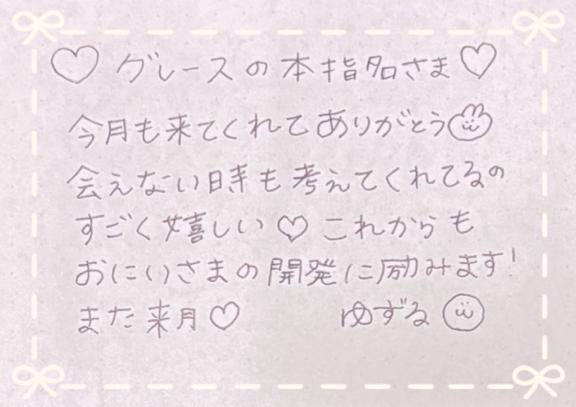 ♡グレースの本指名さま♡
今月も来てくれてありがとう
会えない時も考えてくれてるの
すごく嬉しい♡これからも
おにいさまの開発に励みます!
また来月♡ ゆずる